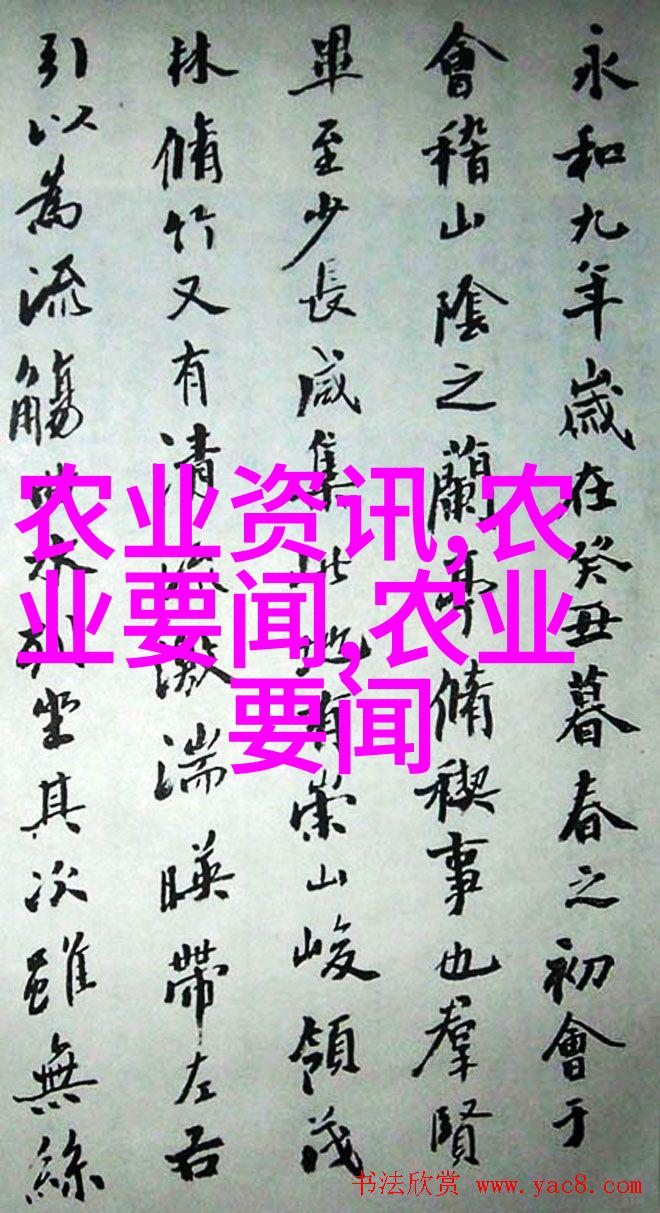 永和九年歲在癸丑暮春之初會于
會稽山陰之蘭亭脩稧事也羣賢
畢至少長咸集此地有崇山峻領茂
林脩竹又有清流激湍暎帶左右
引以為流觴曲水列坐其次雖無絲
农业资讯,农
业要闻,农业
要闻
书法欣赏 www.yac8.com